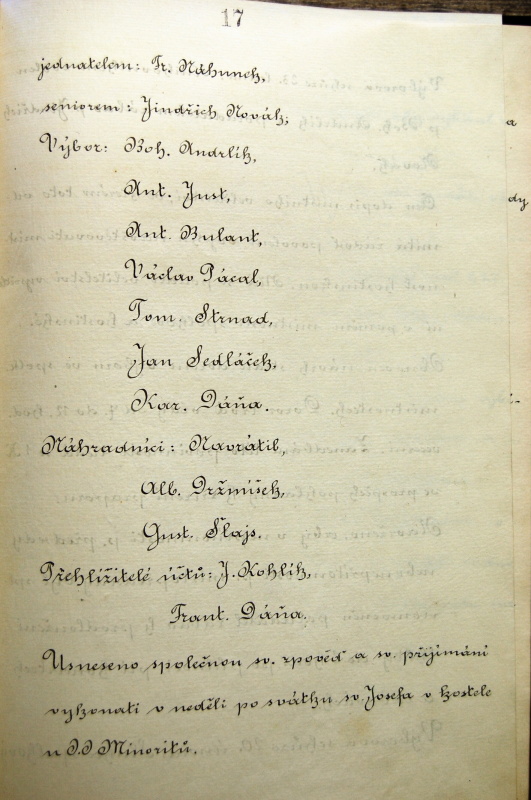 17
jednatelem: Fr. Náhunek,
seniorem: Jindřich Novák;
Výbor: Boh. Andrlík,
Ant. Just,
Ant. Bulant,
Václav Pácal,
Tom. Strnad,
Jan Sedláček,
Kar. Dáňa.
Náhradníci: Navrátil,
Alb. Držmíšek,
Gust. Šlajs.
Přehlížitelé účtů: J. Kohlík,
Frant. Dáňa.
Usneseno společnou sv. zpověď a sv. přijímání
vykonati v neděli po svátku sv. Josefa v kostele
u P.P. Minoritů.
a
dy